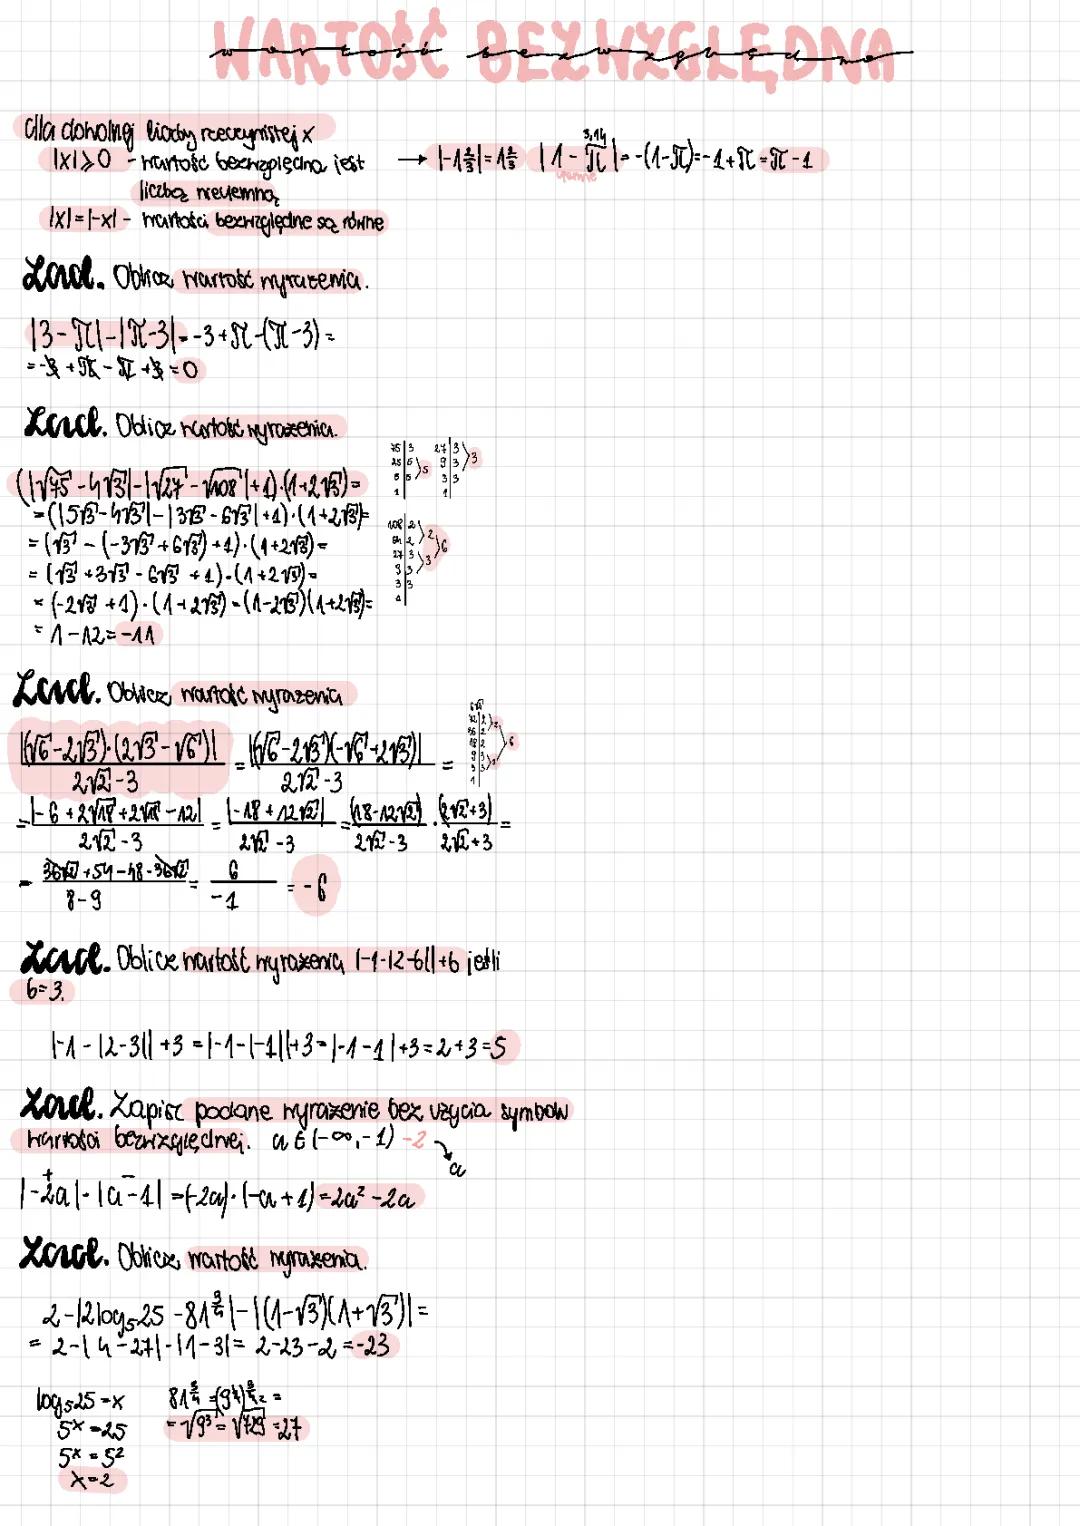 WARTOŚĆ BEZWZGLĘDNA
wartość bezwzględna
dla dowolnej liczby rzeczywistej x
|x| ⩾ 0 - wartość bezwzględna jest
liczbą nieujemną
|x| = |-x| - wartości bezwzględne są równe
→ |-1⅔| = 1⅔ |1 - π| = -(1-π) = -1+π = π-1
3,14
ujemne
Zad. Oblicz wartość wyrażenia.
|3-π| - |π-3| = -3+π-(π-3) =
= -3 + π - π + 3 = 0
Zad. Oblicz wartość wyrażenia.
(|√75 - 4√3| - |√27 - √108| + 1)·(1+2√3) =
= (|5√3 - 4√3| - |3√3 - 6√3| + 1)·(1+2√3) =
= (√3 - (-3√3 + 6√3) + 1)·(1+2√3) =
= (√3 + 3√3 - 6√3 + 1)·(1+2√3) =
= (-2√3 + 1)·(1+2√3) = (1-2√3)(1+2√3) =
= 1-12 = -11
75 | 3 27 | 3
25 | 5 9 | 3 3
5 | 5 5 3 | 3
1 1
108 | 2
54 | 2 2
27 | 3 6
9 | 3 3
3 | 3
1
Zad. Oblicz wartość wyrażenia
|(√6-2√3)·(2√3-√6)| / 2√2-3 = |(√6-2√3)(-√6+2√3)| / 2√2-3 =
6√2
72 | 2
36 | 2 2
18 | 2 6
9 | 3 3
3 | 3
1
= |-6+2√18+2√18-12| / 2√2-3 = |-18+12√2| / 2√2-3 = (18-12√2) / 2√2-3 · (2√2+3) / 2√2+3 =
= 36√2+54-48-36√2 / 8-9 = 6 / -1 = -6
Zad. Oblicz wartość wyrażenia |-1-|2-b||+b jeśli
b=3.
|-1-|2-3||+3 = |-1-|-1||+3 = |-1-1|+3 = 2+3 = 5
Zad. Zapisz podane wyrażenie bez użycia symbolu
wartości bezwzględnej. a ∈ (-∞,-1) -2
a
+ -
|-2a|·|a-1| = (-2a)·(-a+1) = 2a²-2a
Zad. Oblicz wartość wyrażenia.
2-|2log₅25 - 81^¾| - |(1-√3)(1+√3)| =
= 2-|4-27|-|1-3| = 2-23-2 = -23
log₅25 = x 81^¾ = (9²)^¾ =
5ˣ = 25 = √9³ = √729 = 27
5ˣ = 5²
x = 2